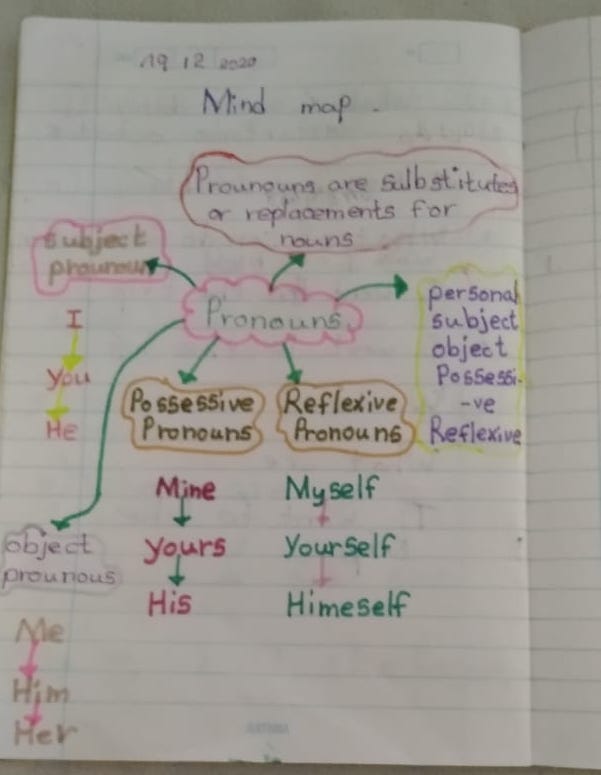 19 12 2020
Mind map.
Prounouns are substitutes
or replacements for
nouns
subject
prounoun
Pronouns
personal
subject
object
Possessi-
-ve
Reflexive
I
you
He
Possessive
Pronouns
Reflexive
Pronouns
Mine
yours
His
Myself
Yourself
Himeself
object
prounous
Me
Him
Her